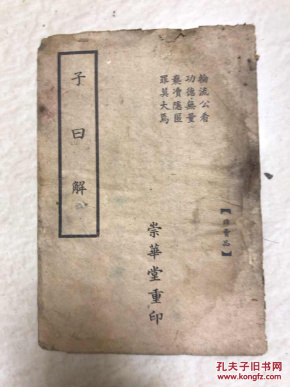 輪流公看
功德無量
褻瀆隱匿
罪莫大焉
子曰解
【非賣品】
崇華堂重印
孔夫子旧书网